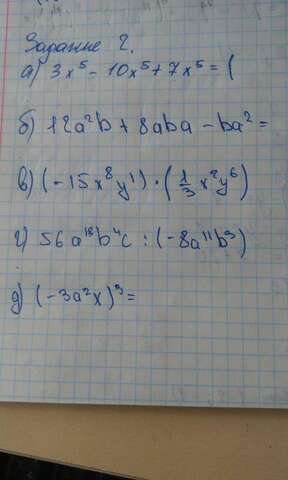 Задание 2.
а) 3x⁵ - 10x⁵ + 7x⁵ = (
б) 12a²b + 8aba - ba² =
в) (-15x⁸y¹) · (1/3 x²y⁶)
г) 56a¹⁸b⁴c : (-8a¹¹b³)
д) (-3a²x)³ =